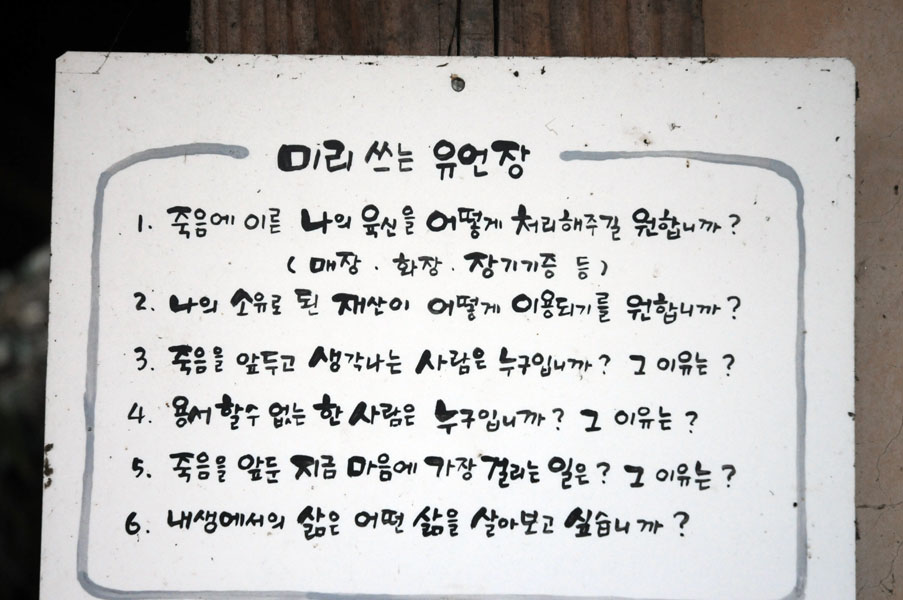 미리 쓰는 유언장
1. 죽음에 이른 나의 육신을 어떻게 처리해주길 원합니까?
( 매장 · 화장 · 장기기증 등 )
2. 나의 소유로 된 재산이 어떻게 이용되기를 원합니까?
3. 죽음을 앞두고 생각나는 사람은 누구입니까? 그 이유는?
4. 용서 할수 없는 한 사람은 누구입니까? 그 이유는?
5. 죽음을 앞둔 지금 마음에 가장 걸리는 일은? 그 이유는?
6. 내생에서의 삶은 어떤 삶을 살아보고 싶습니까?